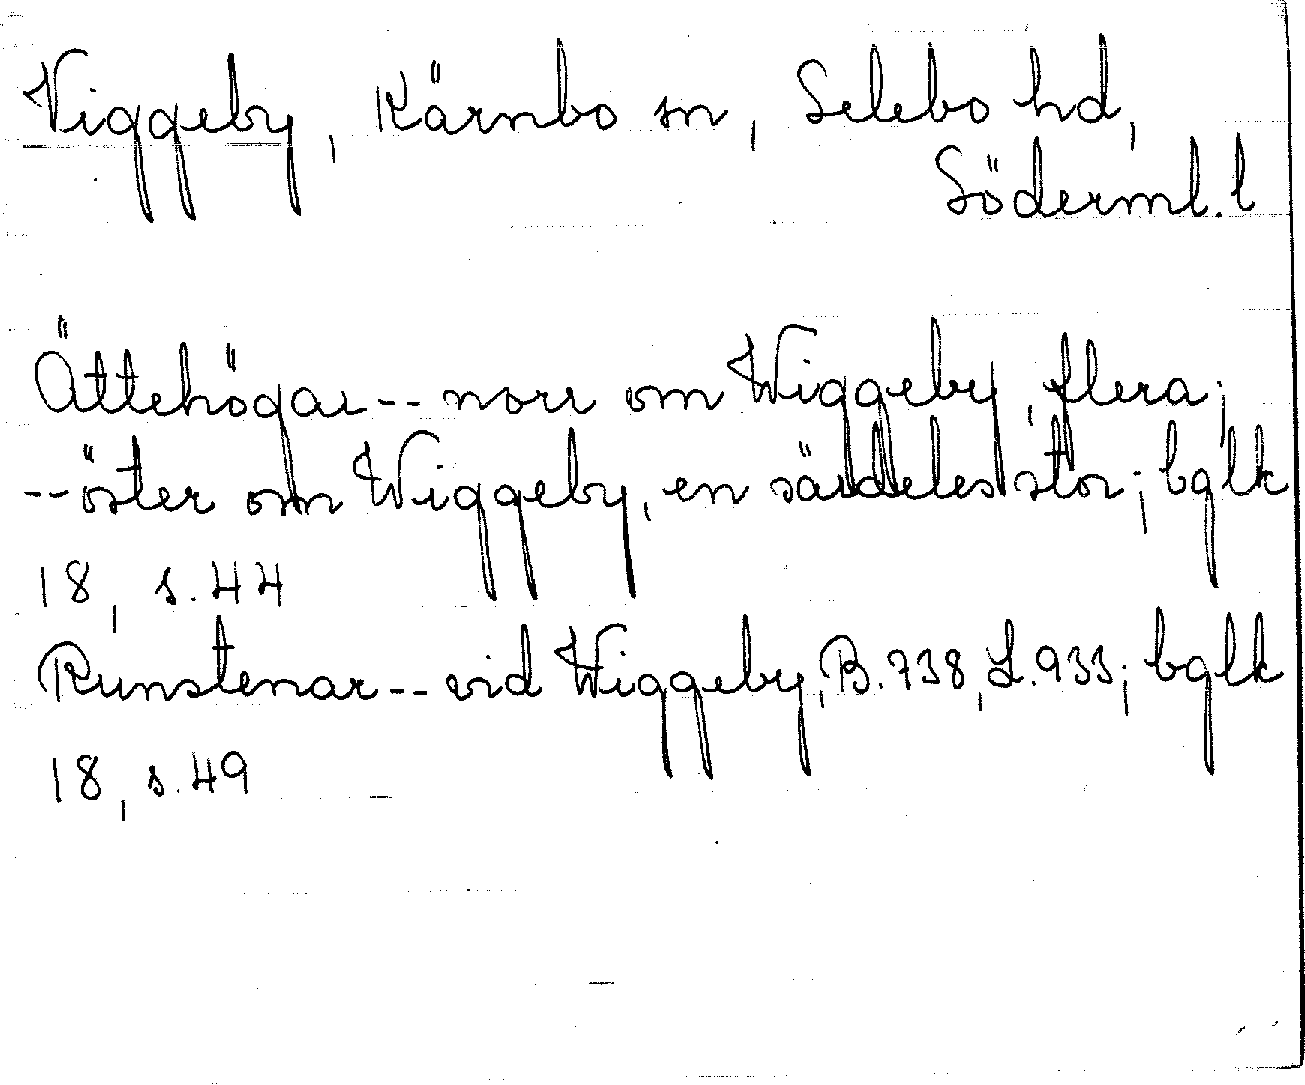 Viggeby, Kärnbo sn, Selebo hd,
Söderml. l
Ättehögar -- norr om Wiggeby, flera;
-- öster om Wiggeby, en särdeles stor; bglk
18, s. 44
Runstenar -- vid Wiggeby, B. 738, L. 933; bglk
18, s. 49